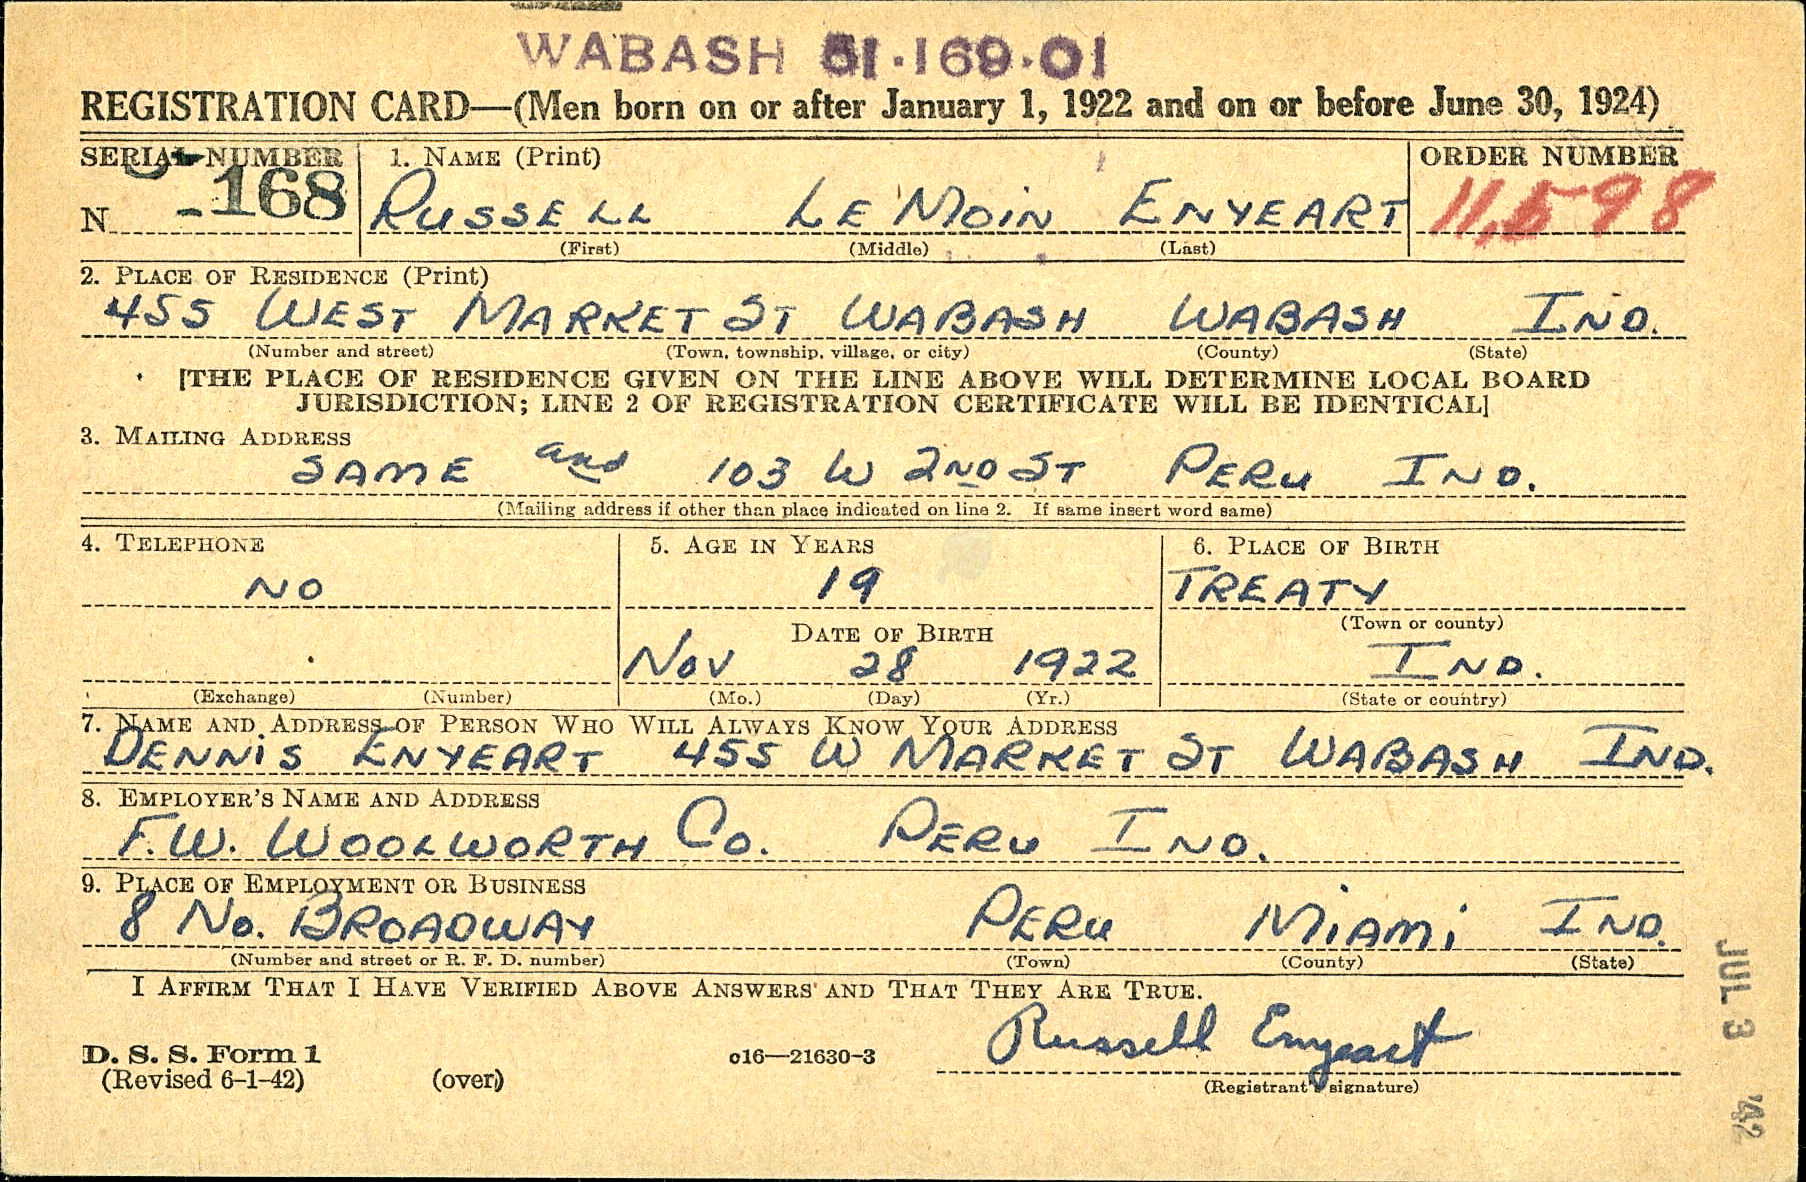 WABASH 51·169·01
REGISTRATION CARD—(Men born on or after January 1, 1922 and on or before June 30, 1924)
SERIAL NUMBER 1. NAME (Print) ORDER NUMBER
N -168 RUSSELL LE MOIN ENYEART 11,598
(First) (Middle) (Last)
2. PLACE OF RESIDENCE (Print)
455 WEST MARKET ST WABASH WABASH IND.
(Number and street) (Town, township, village, or city) (County) (State)
[THE PLACE OF RESIDENCE GIVEN ON THE LINE ABOVE WILL DETERMINE LOCAL BOARD
JURISDICTION; LINE 2 OF REGISTRATION CERTIFICATE WILL BE IDENTICAL]
3. MAILING ADDRESS
SAME and 103 W 2ND ST PERU IND.
(Mailing address if other than place indicated on line 2. If same insert word same)
4. TELEPHONE 5. AGE IN YEARS 6. PLACE OF BIRTH
NO 19 TREATY
(Town or county)
DATE OF BIRTH
NOV 28 1922 IND.
(Exchange) (Number) (Mo.) (Day) (Yr.) (State or country)
7. NAME AND ADDRESS OF PERSON WHO WILL ALWAYS KNOW YOUR ADDRESS
DENNIS ENYEART 455 W MARKET ST WABASH IND.
8. EMPLOYER'S NAME AND ADDRESS
F.W. WOOLWORTH CO. PERU IND.
9. PLACE OF EMPLOYMENT OR BUSINESS
8 NO. BROADWAY PERU MIAMI IND.
(Number and street or R. F. D. number) (Town) (County) (State)
I AFFIRM THAT I HAVE VERIFIED ABOVE ANSWERS AND THAT THEY ARE TRUE.
Russell Enyeart
D. S. S. Form 1 c16—21630-3
(Revised 6-1-42) (over) (Registrant's signature)
JUL 3 '42